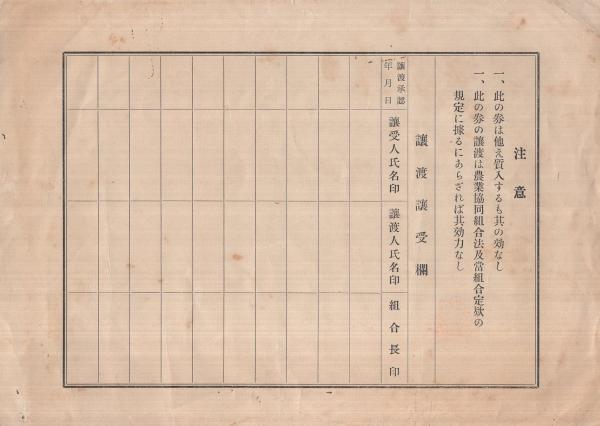 注意
一、此の券は他え質入するも其の効なし
一、此の券の讓渡は農業協同組合法及當組合定款の
規定に據るにあらざれば其効力なし
讓渡讓受欄
讓渡承認
年月日
讓受人氏名印
讓渡人氏名印
組合長印